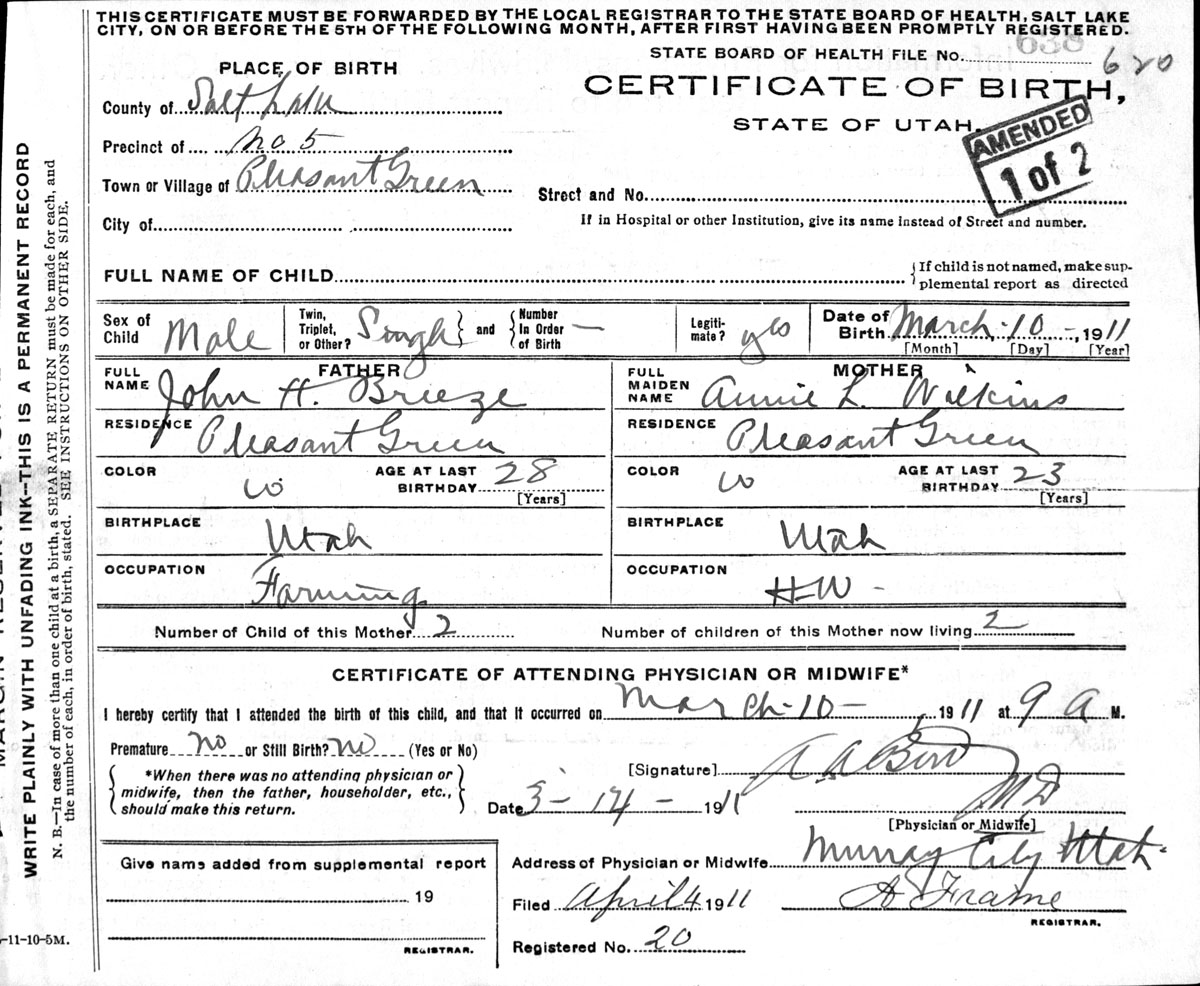 THIS CERTIFICATE MUST BE FORWARDED BY THE LOCAL REGISTRAR TO THE STATE BOARD OF HEALTH, SALT LAKE
CITY, ON OR BEFORE THE 5TH OF THE FOLLOWING MONTH, AFTER FIRST HAVING BEEN PROMPTLY REGISTERED.
STATE BOARD OF HEALTH FILE No. 638 620
PLACE OF BIRTH
CERTIFICATE OF BIRTH,
STATE OF UTAH.
AMENDED
1 of 2
County of Salt Lake
Precinct of No 5
Town or Village of Pleasant Green
Street and No.
City of
If in Hospital or other Institution, give its name instead of Street and number.
FULL NAME OF CHILD
If child is not named, make sup-
plemental report as directed
Sex of Child Male
Twin, Triplet, or Other? Single and Number In Order of Birth —
Legiti-mate? yes
Date of Birth March-10-, 1911
[Month] [Day] [Year]
FATHER
FULL NAME John H. Breeze
RESIDENCE Pleasant Green
COLOR W AGE AT LAST BIRTHDAY 28
[Years]
BIRTHPLACE Utah
OCCUPATION Farming
MOTHER
FULL MAIDEN NAME Annie L. Wilkins
RESIDENCE Pleasant Green
COLOR W AGE AT LAST BIRTHDAY 23
[Years]
BIRTHPLACE Utah
OCCUPATION HW -
Number of Child of this Mother 2 Number of children of this Mother now living 2
CERTIFICATE OF ATTENDING PHYSICIAN OR MIDWIFE*
I hereby certify that I attended the birth of this child, and that it occurred on March-10-, 1911 at 9 A M.
Premature no or Still Birth? no (Yes or No)
*When there was no attending physician or
midwife, then the father, householder, etc.,
should make this return.
[Signature]
Date 3-14-1911 MD
[Physician or Midwife]
Give name added from supplemental report
19
REGISTRAR.
Address of Physician or Midwife Murray City Utah.
Filed April 4 1911 A Frame
REGISTRAR.
Registered No. 20
WRITE PLAINLY WITH UNFADING INK--THIS IS A PERMANENT RECORD
N. B.—In case of more than one child at a birth, a SEPARATE RETURN must be made for each, and
the number of each, in order of birth, stated. SEE INSTRUCTIONS ON OTHER SIDE.
-11-10-5M.